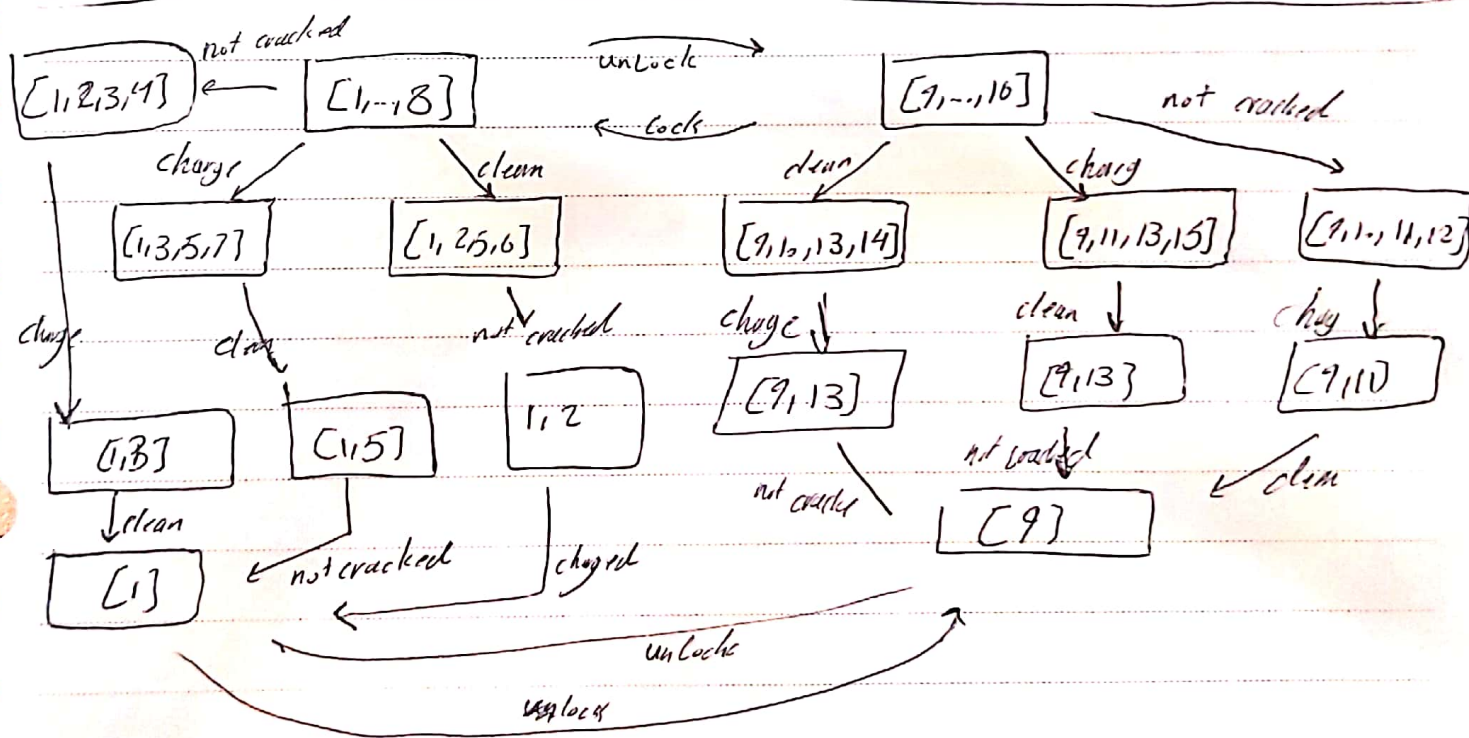 not cracked
[1,2,3,4] [1,..,8] unLock [9,...,16] not cracked
Lock
charge clean clean charg
[1,3,5,7] [1,2,5,6] [9,10,13,14] [9,11,13,15] [9,10,11,12]
charge clean not cracked chage clean chag
[1,3] [1,5] 1,2 [9,13] [9,13] [9,11]
clean not cracked chaged not cracke not cracked clean
[1] [9]
unLock
unlock